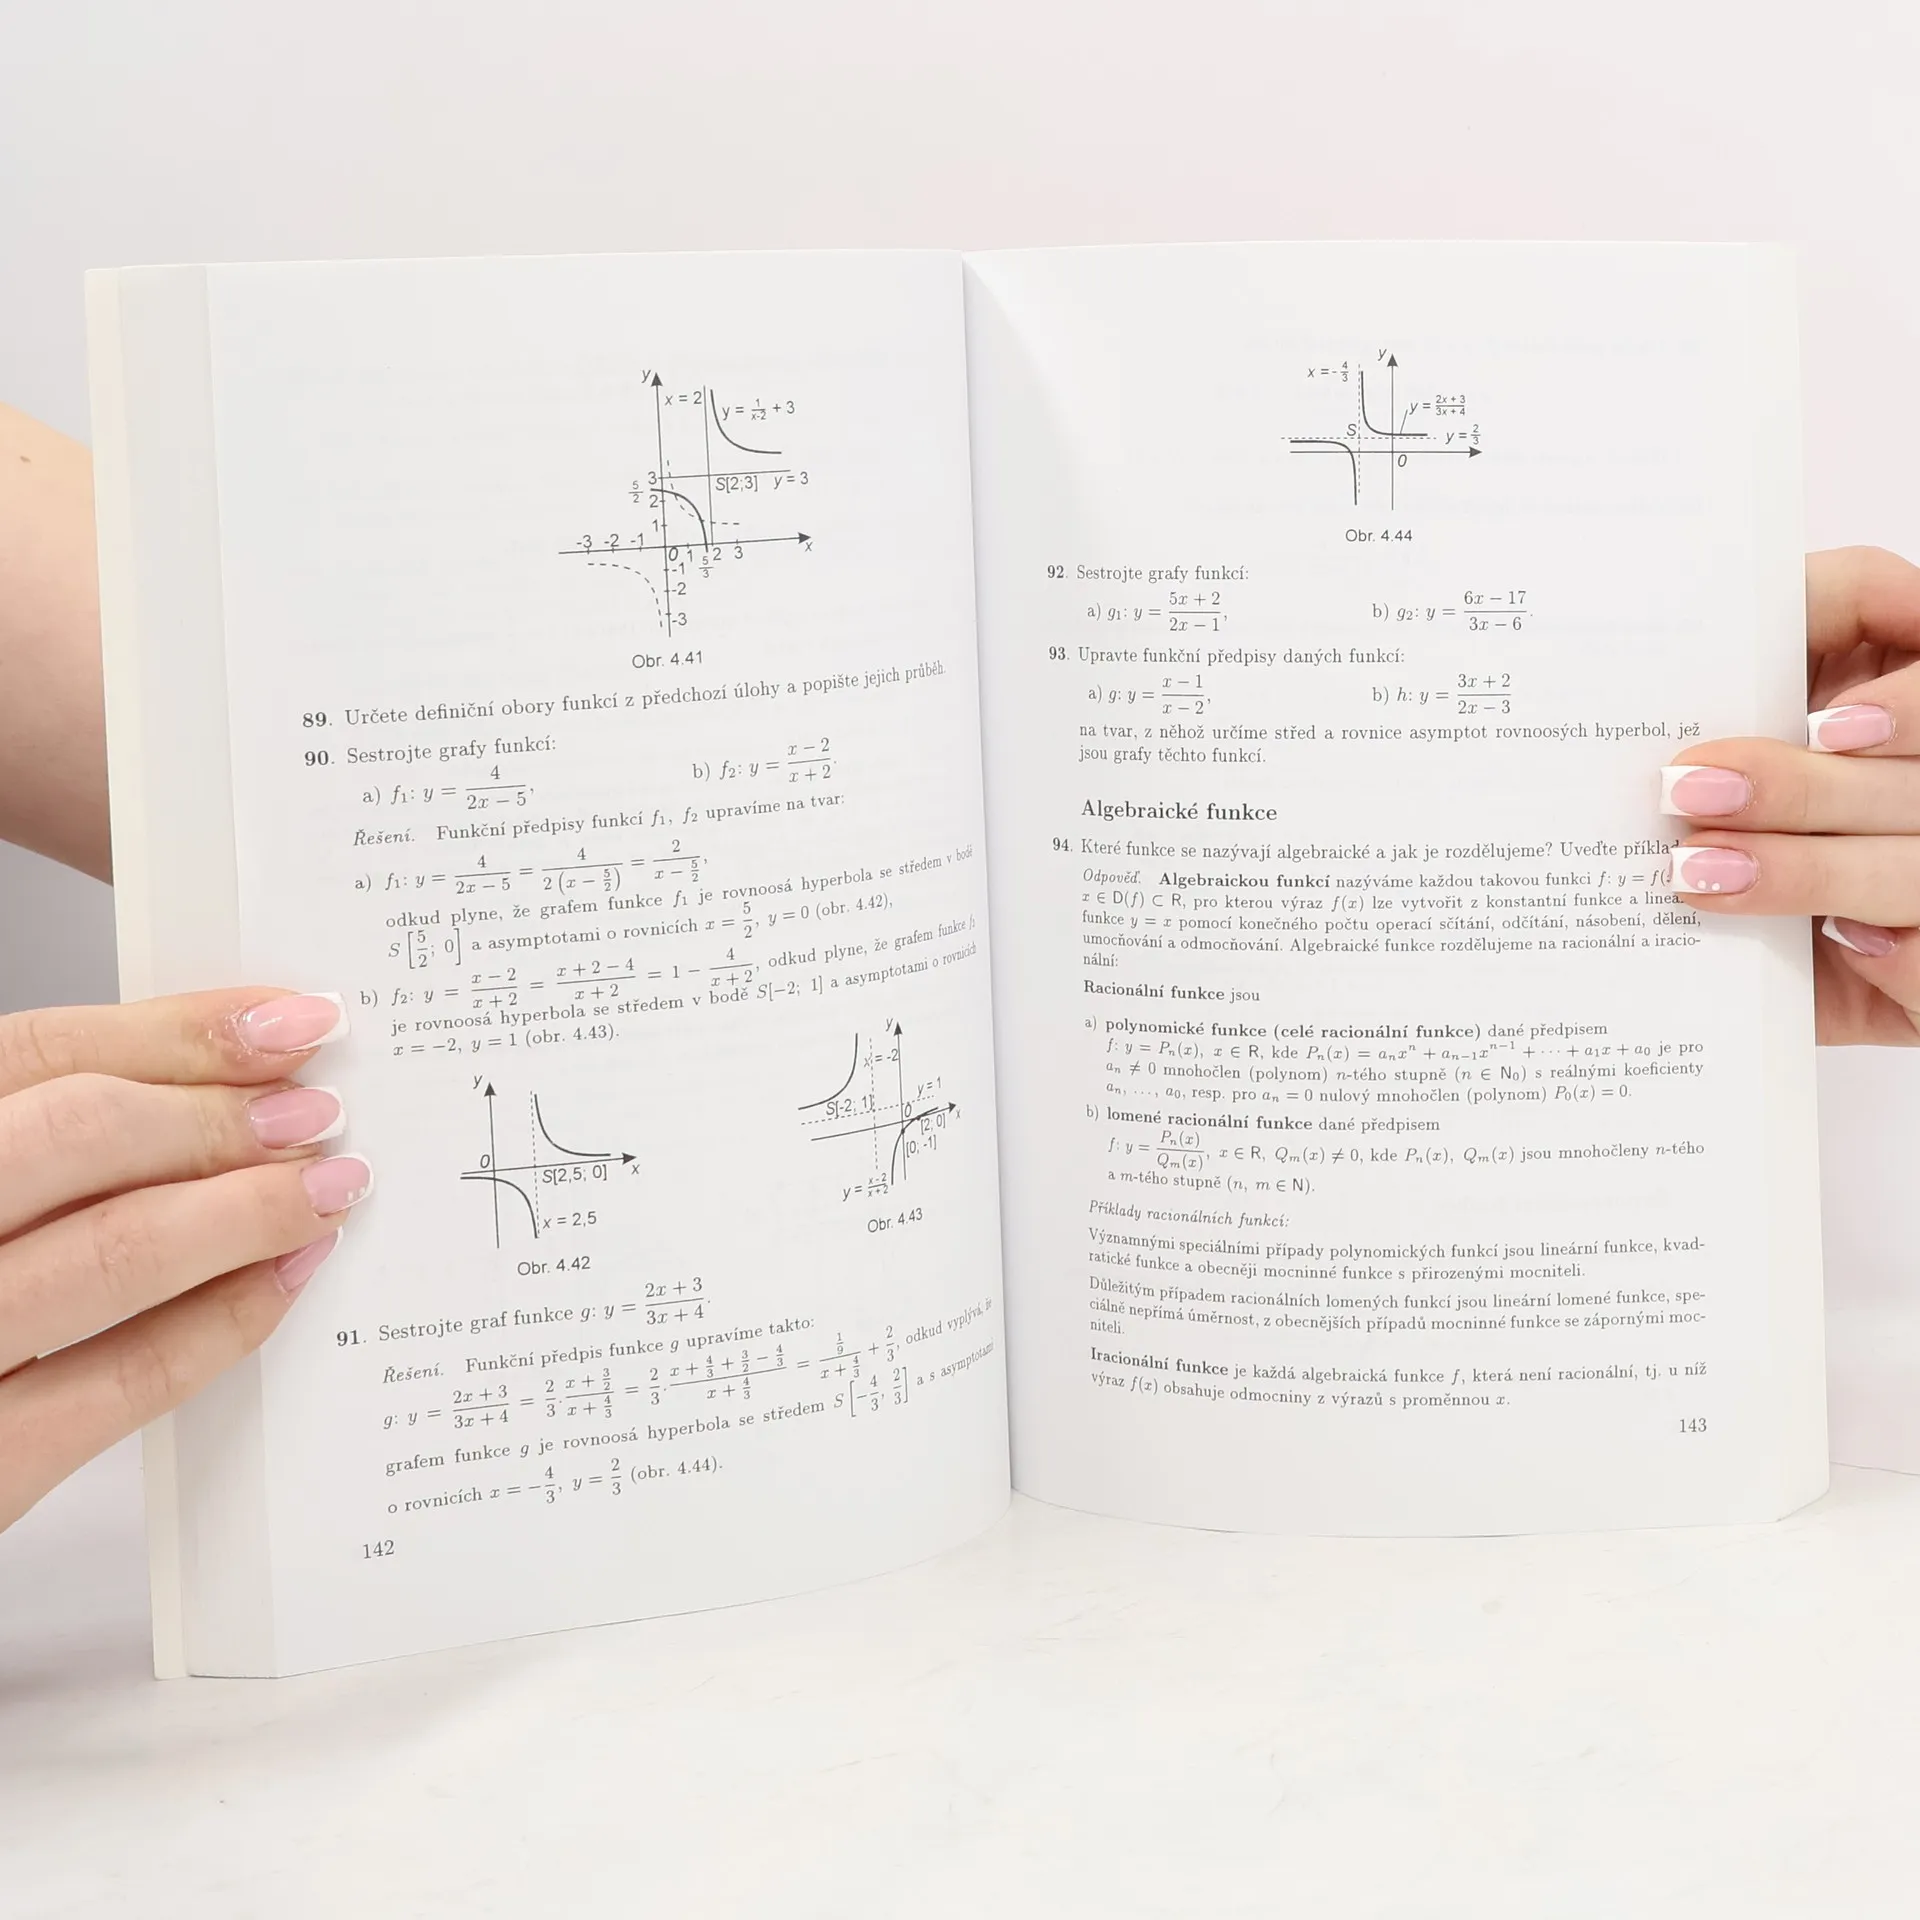 y
x = 2
y = 1/(x-2) + 3
3
5/2
2
S[2;3] y = 3
1
-3 -2 -1
0 1 5/3 2 3 x
-1
-2
-3
Obr. 4.41
89. Určete definiční obory funkcí z předchozí úlohy a popište jejich průběh.
90. Sestrojte grafy funkcí:
a) f₁: y = 4/(2x − 5), b) f₂: y = (x − 2)/(x + 2).
Řešení. Funkční předpisy funkcí f₁, f₂ upravíme na tvar:
a) f₁: y = 4/(2x − 5) = 4/(2(x − 5/2)) = 2/(x − 5/2),
odkud plyne, že grafem funkce f₁ je rovnoosá hyperbola se středem v bodě
S[5/2; 0] a asymptotami o rovnicích x = 5/2, y = 0 (obr. 4.42),
b) f₂: y = (x − 2)/(x + 2) = (x + 2 − 4)/(x + 2) = 1 − 4/(x + 2), odkud plyne, že grafem funkce f₂
je rovnoosá hyperbola se středem v bodě S[−2; 1] a asymptotami o rovnicích
x = −2, y = 1 (obr. 4.43).
y
0
S[2,5; 0] x
x = 2,5
Obr. 4.42
y
x = -2
y = 1
S[-2; 1]
0 x
[2; 0]
[0; -1]
y = (x-2)/(x+2)
Obr. 4.43
91. Sestrojte graf funkce g: y = (2x + 3)/(3x + 4).
Řešení. Funkční předpis funkce g upravíme takto:
g: y = (2x + 3)/(3x + 4) = 2/3 · (x + 3/2)/(x + 4/3) = 2/3 · (x + 4/3 + 3/2 − 4/3)/(x + 4/3) = (1/9)/(x + 4/3) + 2/3, odkud vyplývá, že
grafem funkce g je rovnoosá hyperbola se středem S[−4/3, 2/3] a s asymptotami
o rovnicích x = −4/3, y = 2/3 (obr. 4.44).
142
y
x = -4/3
y = (2x + 3)/(3x + 4)
S
y = 2/3
0
Obr. 4.44
92. Sestrojte grafy funkcí:
a) g₁: y = (5x + 2)/(2x − 1), b) g₂: y = (6x − 17)/(3x − 6).
93. Upravte funkční předpisy daných funkcí:
a) g: y = (x − 1)/(x − 2), b) h: y = (3x + 2)/(2x − 3)
na tvar, z něhož určíme střed a rovnice asymptot rovnoosých hyperbol, jež
jsou grafy těchto funkcí.
Algebraické funkce
94. Které funkce se nazývají algebraické a jak je rozdělujeme? Uveďte
Odpověď. Algebraickou funkcí nazýváme každou takovou funkci f: y =
x ∈ D(f) ⊂ R, pro kterou výraz f(x) lze vytvořit z konstantní funkce a
funkce y = x pomocí konečného počtu operací sčítání, odčítání, násobení, dělení,
umocňování a odmocňování. Algebraické funkce rozdělujeme na racionální a iracio-
nální:
Racionální funkce jsou
a) polynomické funkce (celé racionální funkce) dané předpisem
f: y = Pₙ(x), x ∈ R, kde Pₙ(x) = aₙxⁿ + aₙ₋₁xⁿ⁻¹ + ··· + a₁x + a₀ je pro
aₙ ≠ 0 mnohočlen (polynom) n-tého stupně (n ∈ N₀) s reálnými koeficienty
aₙ, ..., a₀, resp. pro aₙ = 0 nulový mnohočlen (polynom) P₀(x) = 0.
b) lomené racionální funkce dané předpisem
f: y = Pₙ(x)/Qₘ(x), x ∈ R, Qₘ(x) ≠ 0, kde Pₙ(x), Qₘ(x) jsou mnohočleny n-tého
a m-tého stupně (n, m ∈ N).
Příklady racionálních funkcí:
Významnými speciálními případy polynomických funkcí jsou lineární funkce, kvad-
ratické funkce a obecněji mocninné funkce s přirozenými mocniteli.
Důležitým případem racionálních lomených funkcí jsou lineární lomené funkce, spe-
ciálně nepřímá úměrnost, z obecnějších případů mocninné funkce se zápornými moc-
niteli.
Iracionální funkce je každá algebraická funkce f, která není racionální, tj. u níž
výraz f(x) obsahuje odmocniny z výrazů s proměnnou x.
143